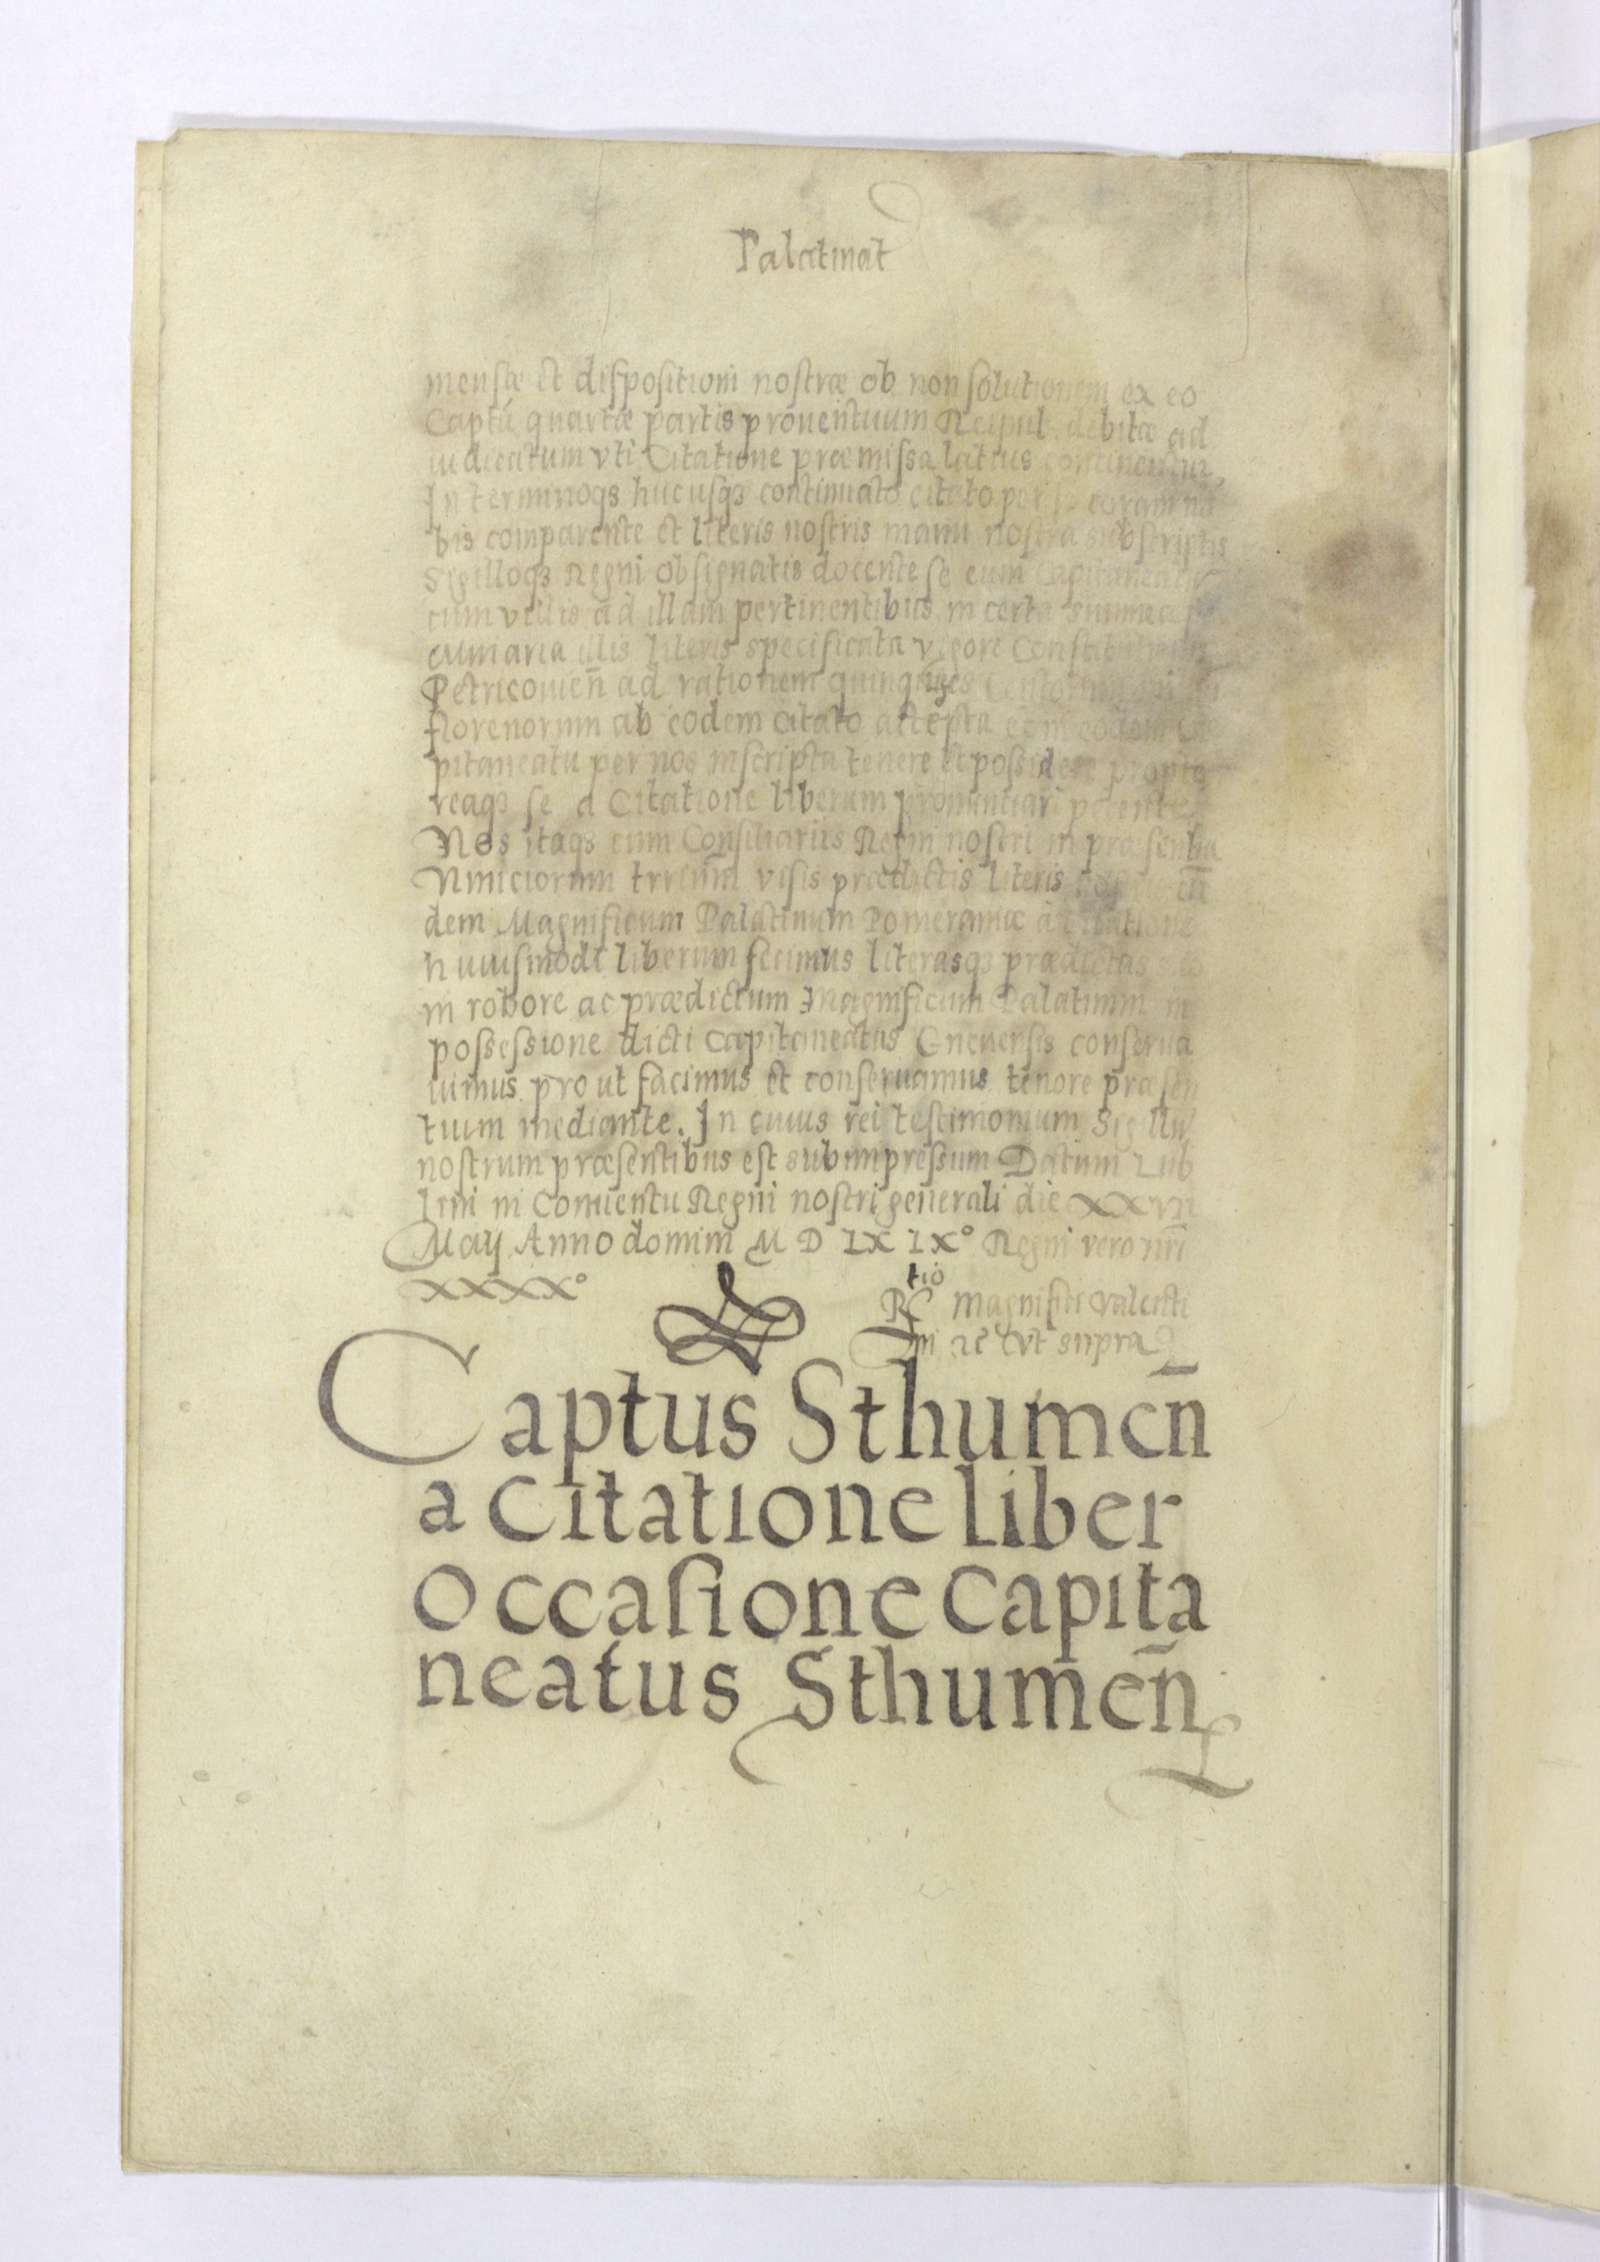 Palatinat
mensæ et dispositioni nostræ ob non solutionem ex eo
Captū quartæ partis prouentuum Reipul. debitæ ad
iudicatum vti Citatione præmissa latius continentur,
In terminoqȝ hucusqȝ continuato citato per se coram no
bis comparente et literis nostris manu nostra subscriptis
Sigilloqȝ Regni obsignatis docente se eum Capitaneatū
cum villis ad illam pertinentibus in certa summa
cuniaria illis literis specificata vigore
Petricouien̄ ad rationem
florenorum ab eodem citato accepta et in eodem Ca
pitaneatu per nos inscripta tenere et possidere propte
reaqȝ se a Citatione liberum pronunciari petente
Nos itaqȝ cum Consiliariis Regni nostri in præsentia
Nunciorum trrūm visis prædictis literis
dem Magnificum Palatinum Pomeraniæ a Citatione
huiusmodi liberum fecimus literasqȝ prædictas
in robore ac prædictum Magnificum Palatinum in
possessione dicti Capitaneatus Gneuensis conserua
uimus prout facimus et conseruamus tenore præsen
tium mediante. In cuius rei testimonium Sigillū
nostrum præsentibus est subimpressum Datum Lub
lini in Conuentu Regni nostri generali die XXVII
Maÿ Anno domini M D LX IX° Regni vero nr̄i
XXXX°
Rᵗⁱᵒ Magnifici Valenti
ni ꝛc vt supra
Captus Sthumen̄
a Citatione liber
occasione Capita
neatus Sthumen̄